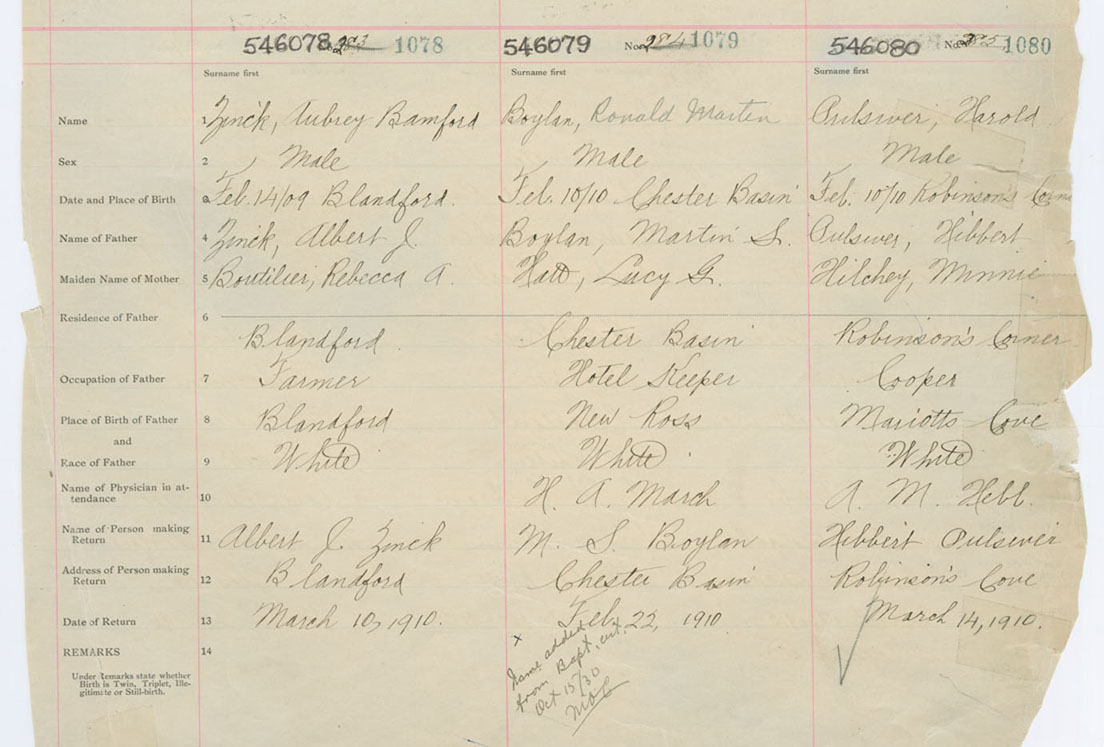 546078 283 1078 546079 No. 284 1079 546080 No. 285 1080
Surname first Surname first Surname first
Name 1 Zinck, Aubrey Bamford Boylan, Ronald Martin Pulsiver, Harold
Sex 2 Male Male Male
Date and Place of Birth 3 Feb. 14/09 Blandford. Feb. 10/10 Chester Basin Feb. 10/10 Robinson's Corner
Name of Father 4 Zinck, Albert J. Boylan, Martin S. Pulsiver, Hibbert
Maiden Name of Mother 5 Boutilier, Rebecca A. Hatt, Lucy G. Hilchey, Minnie
Residence of Father 6
Blandford Chester Basin Robinson's Corner
Occupation of Father 7 Farmer Hotel Keeper Cooper
Place of Birth of Father 8 Blandford New Ross Mariotts Cove
and
Race of Father 9 White White White
Name of Physician in at-
tendance 10 H. A. March A. M. Hebb.
Name of Person making
Return 11 Albert J. Zinck M. S. Boylan Hibbert Pulsiver
Address of Person making
Return 12 Blandford Chester Basin Robinson's Cove
Date of Return 13 March 10, 1910. Feb. 22, 1910 March 14, 1910.
REMARKS 14
Under Remarks state whether
Birth is Twin, Triplet, Ille-
gitimate or Still-birth.
x
Name added
from Bapt. cert.
Oct 15/30